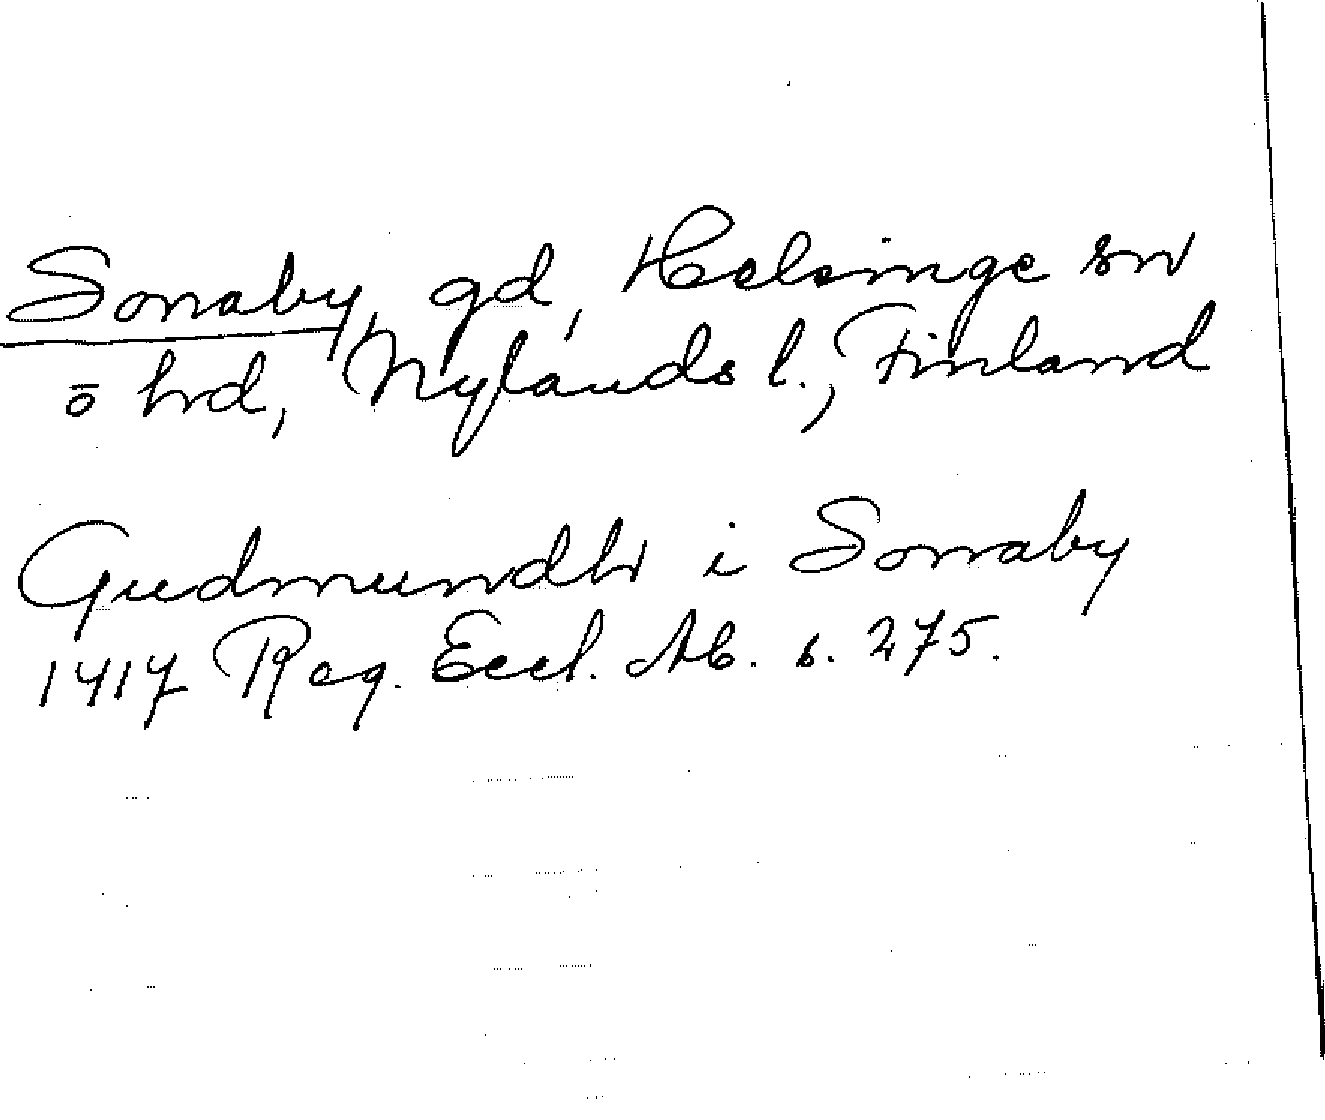 Sonaby, gd, Helsinge sn
ö hrd, Nylands l., Finland
Gudmundh i Sonaby
1417 Reg. Eccl. Ab. s. 275.